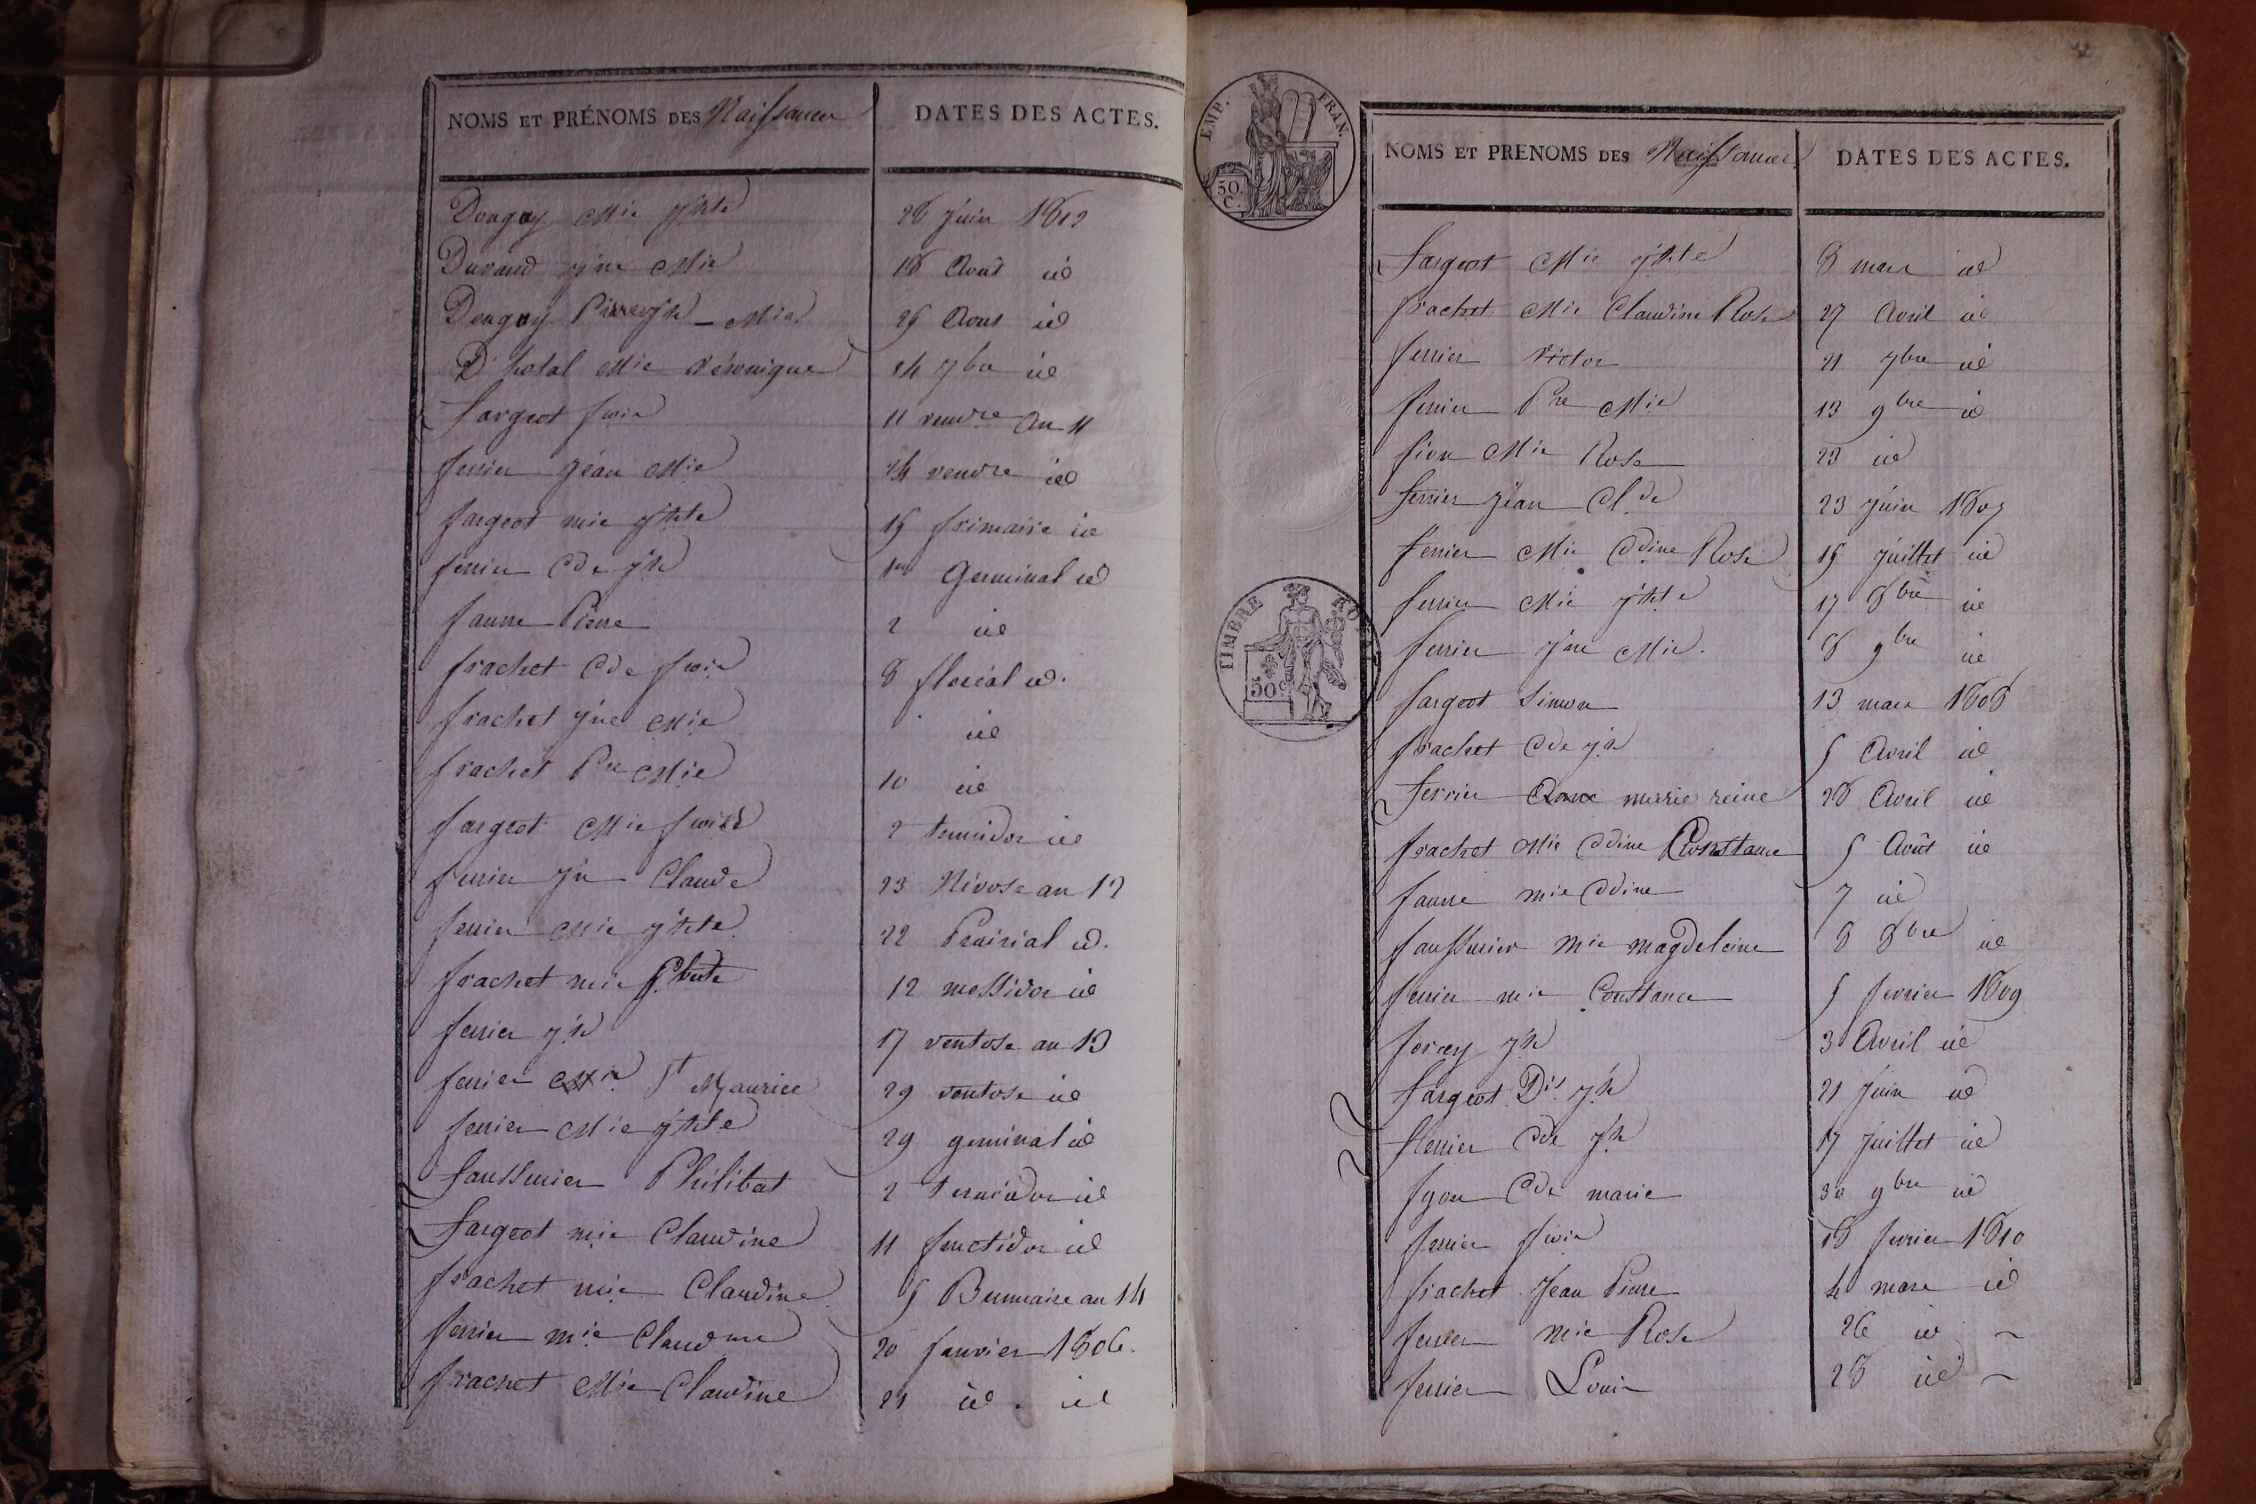 NOMS ET PRÉNOMS DES Naissances DATES DES ACTES.
Mie jhte 26 juin 1812
Durand jne Mie 18 Août id
Pierre jh - Mie 25 Aout id
Mie Véronique 24 7bre id
fargeot fois 11 vendre an 11
ferrier jean Mie 24 vendre id
fargeot mie jhte 15 frimaire id
ferrier Cde jh 1er Germinal id
faune Pierre 2 id
frachet Cde fois 8 floréal id.
frachet jne Mie id
frachet Pre Mie 10 id
fargeot Mie 2 termidor id
ferrier jn Claude 23 Nivose an 12
ferrier Mie jhte 22 Prairial id.
frachet mie 12 messidor id
ferrier jh 17 ventose an 13
ferrier Mie St Maurice 29 ventose id
ferrier Mie jhte 29 germinal id
faussurier Philibert 2 termidor id
fargeot mie Claudine 11 fructidor id
frachet mie Claudine 5 Brumaire an 14
ferrier mie Claudine 20 janvier 1806.
frachet Mie Claudine 21 id. id
EMP. FRAN.
50 C.
TIMBRE
50 c
NOMS ET PRENOMS DES Naissances DATES DES ACTES.
fargeot Mie jhte 8 mars id
frachet Mie Claudine Rose 27 Avril id
ferrier victor 21 7bre id
ferrier Pre Mie 13 9bre id
fion Mie Rose 23 id
ferrier jean Cl.de 23 juin 1807
ferrier Mie Cdine Rose 15 juillet id
ferrier Mie jhte 17 8bre id
ferrier jne Mie. 8 9bre id
fargeot Simon 13 mars 1808
frachet Cde jh 5 Avril id
ferrier marie reine 28 Avril id
frachet Mie Cdine Constance 5 Août id
faune mie Cdine 7 id
faussurier mie magdeleine 8 8bre id
ferrier mie Constance 5 fevrier 1809
foray jh 3 Avril id
fargeot Dis jh 21 juin id
ferrier Cde jh 17 juillet id
fyon Cde marie 30 9bre id
ferrier fois 18 fevrier 1810
frachet Jean Pierre 4 mars id
ferrier mie Rose 26 id
ferrier Louis 28 id